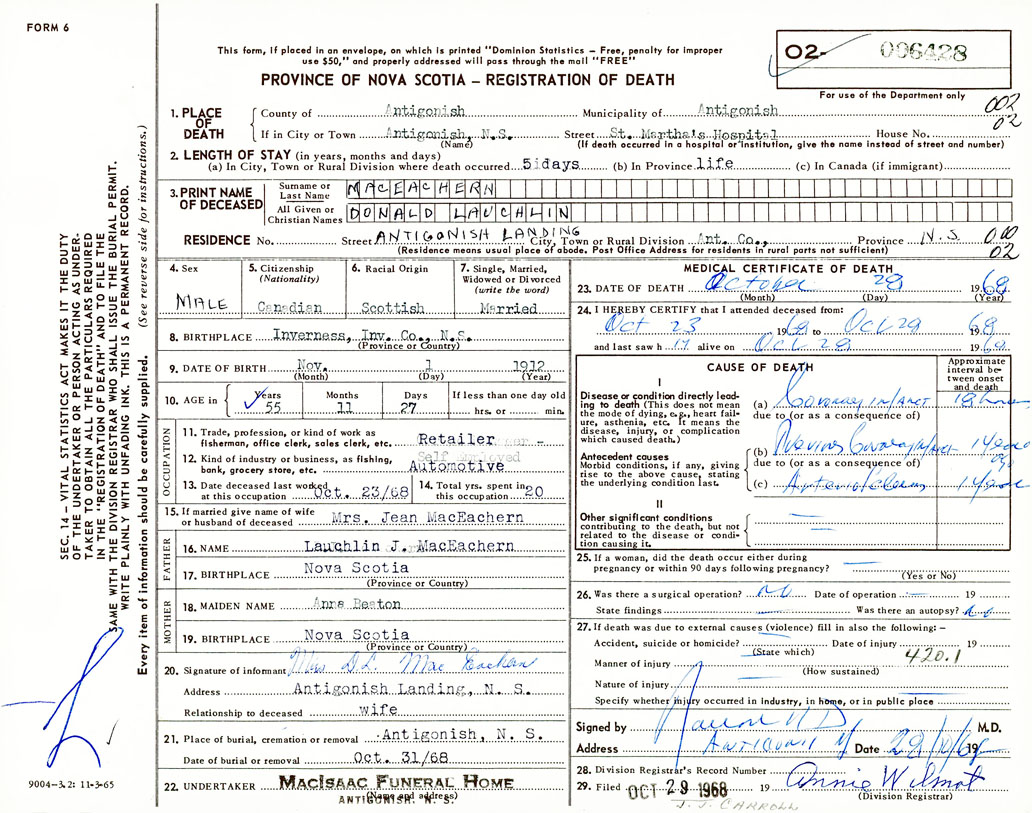 FORM 6
This form, if placed in an envelope, on which is printed "Dominion Statistics – Free, penalty for improper
use $50," and properly addressed will pass through the mail "FREE"
PROVINCE OF NOVA SCOTIA – REGISTRATION OF DEATH
02- 006428
For use of the Department only
002
02
1. PLACE OF DEATH
County of Antigonish Municipality of Antigonish
If in City or Town Antigonish, N.S. Street St. Martha's Hospital House No.
(Name) (If death occurred in a hospital or institution, give the name instead of street and number)
2. LENGTH OF STAY (in years, months and days)
(a) In City, Town or Rural Division where death occurred 5 days (b) In Province life (c) In Canada (if immigrant)
3. PRINT NAME OF DECEASED
Surname or Last Name MACEACHERN
All Given or Christian Names DONALD LAUCHLIN
RESIDENCE No. Street ANTIGONISH LANDING City, Town or Rural Division Ant. Co., Province N.S. 000
(Residence means usual place of abode. Post Office Address for residents in rural parts not sufficient) 02
4. Sex
MALE
5. Citizenship
(Nationality)
Canadian
6. Racial Origin
Scottish
7. Single, Married, Widowed or Divorced
(write the word)
Married
8. BIRTHPLACE Inverness, Inv. Co., N.S.
(Province or Country)
9. DATE OF BIRTH Nov. 1 1912
(Month) (Day) (Year)
10. AGE in Years Months Days If less than one day old
55 11 27 hrs. or min.
OCCUPATION
11. Trade, profession, or kind of work as
fisherman, office clerk, sales clerk, etc. Retailer
12. Kind of industry or business, as fishing,
bank, grocery store, etc. Self Employed Automotive
13. Date deceased last worked
at this occupation Oct. 23/68
14. Total yrs. spent in
this occupation 20
15. If married give name of wife
or husband of deceased Mrs. Jean MacEachern
FATHER
16. NAME Lauchlin J. MacEachern
17. BIRTHPLACE Nova Scotia
(Province or Country)
MOTHER
18. MAIDEN NAME Anna Beaton
19. BIRTHPLACE Nova Scotia
(Province or Country)
20. Signature of informant Mrs D.L. MacEachern
Address Antigonish Landing, N. S.
Relationship to deceased wife
21. Place of burial, cremation or removal Antigonish, N. S.
Date of burial or removal Oct. 31/68
22. UNDERTAKER MacIsaac Funeral Home
(Name and address)
ANTIGONISH, N. S.
MEDICAL CERTIFICATE OF DEATH
23. DATE OF DEATH October 28 1968
(Month) (Day) (Year)
24. I HEREBY CERTIFY that I attended deceased from:
Oct 23 1968 to Oct 29 1968
and last saw h im alive on Oct 28 1968
CAUSE OF DEATH
Approximate interval between onset and death
I
Disease or condition directly leading to death (This does not mean the mode of dying, e.g., heart failure, asthenia, etc. It means the disease, injury, or complication which caused death.)
(a) Coronary infarct 18 hours
due to (or as a consequence of)
Antecedent causes
Morbid conditions, if any, giving rise to the above cause, stating the underlying condition last.
(b) Previous Coronary infarct 1 year ago
due to (or as a consequence of)
(c)
II
Other significant conditions
contributing to the death, but not
related to the disease or condition causing it.
25. If a woman, did the death occur either during
pregnancy or within 90 days following pregnancy?
(Yes or No)
26. Was there a surgical operation? No Date of operation 19
State findings Was there an autopsy? No
27. If death was due to external causes (violence) fill in also the following:–
Accident, suicide or homicide? Date of injury 19
(State which) 420.1
Manner of injury
(How sustained)
Nature of injury
Specify whether injury occurred in industry, in home, or in public place
Signed by M.D.
Address Antigonish Date 29/10/68 19
28. Division Registrar's Record Number
29. Filed OCT 29 1968 19 Annie Wilmot
(Division Registrar)
J. J. CARROLL
SEC. 14 – VITAL STATISTICS ACT MAKES IT THE DUTY
OF THE UNDERTAKER OR PERSON ACTING AS UNDER-
TAKER TO OBTAIN ALL THE PARTICULARS REQUIRED
IN THE "REGISTRATION OF DEATH" AND TO FILE THE
SAME WITH THE DIVISION REGISTRAR WHO SHALL ISSUE THE BURIAL PERMIT.
WRITE PLAINLY WITH UNFADING INK. THIS IS A PERMANENT RECORD.
Every item of information should be carefully supplied. (See reverse side for instructions.)
9004–3.2: 11-3-65